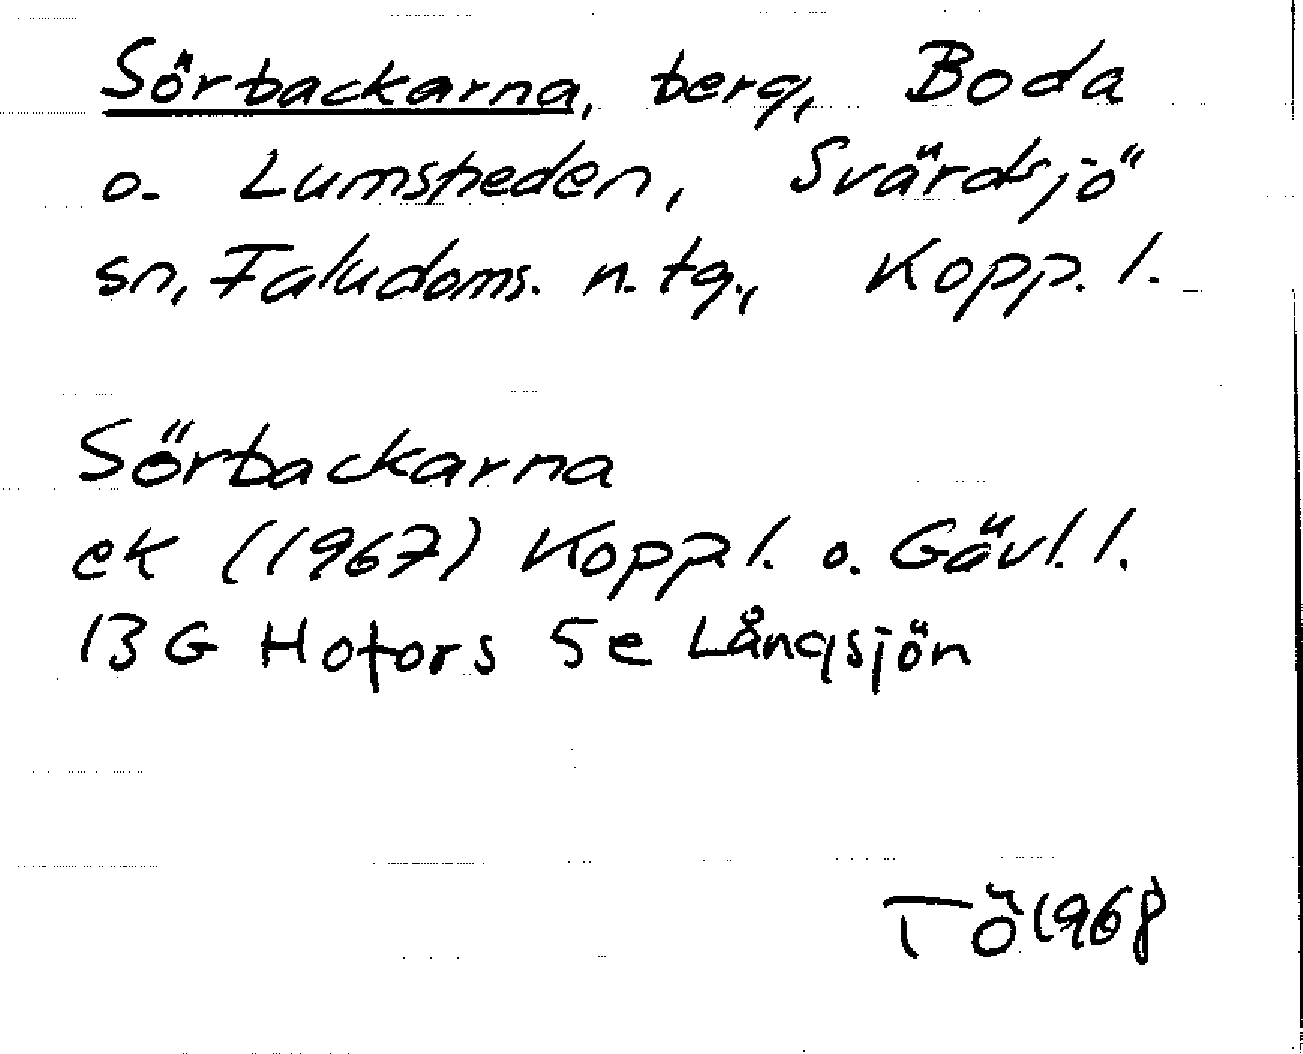 Sörbackarna, berg, Boda
o. Lumsheden, Svärdsjö
sn, Faludoms. n. tg., Kopp. l.
Sörbackarna
ek (1967) Kopp l. o. Gävl. l.
13 G Hofors 5e Långsjön
TÖ 1968